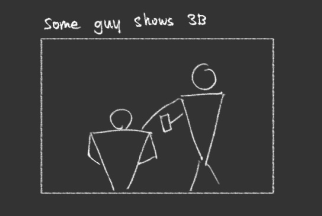 Some guy shows 3B